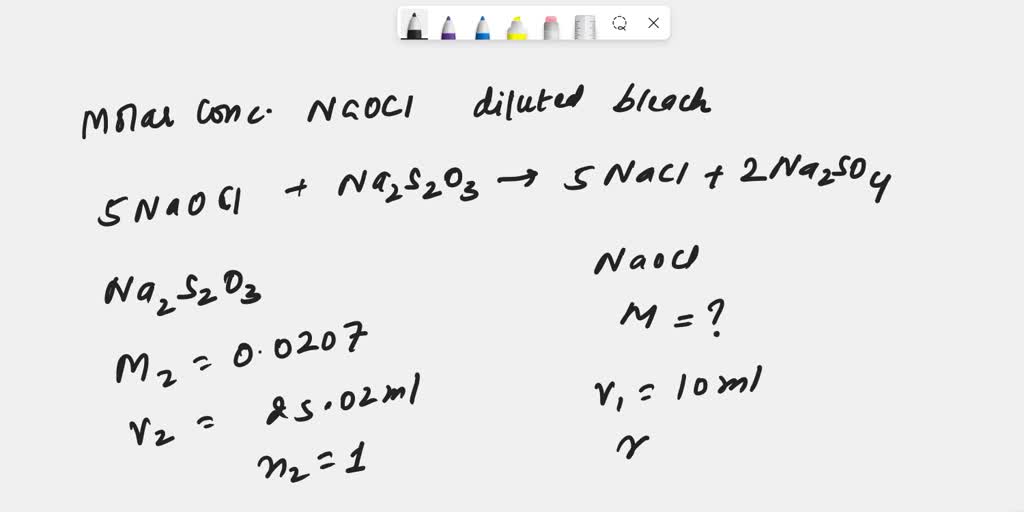 Molar Conc. NaOCl diluted bleach
5 NaOCl + Na2S2O3 → 5 NaCl + 2 Na2SO4
Na2S2O3
M2 = 0.0207
V2 = 25.02 ml
n2 = 1
NaOCl
M = ?
V1 = 10 ml